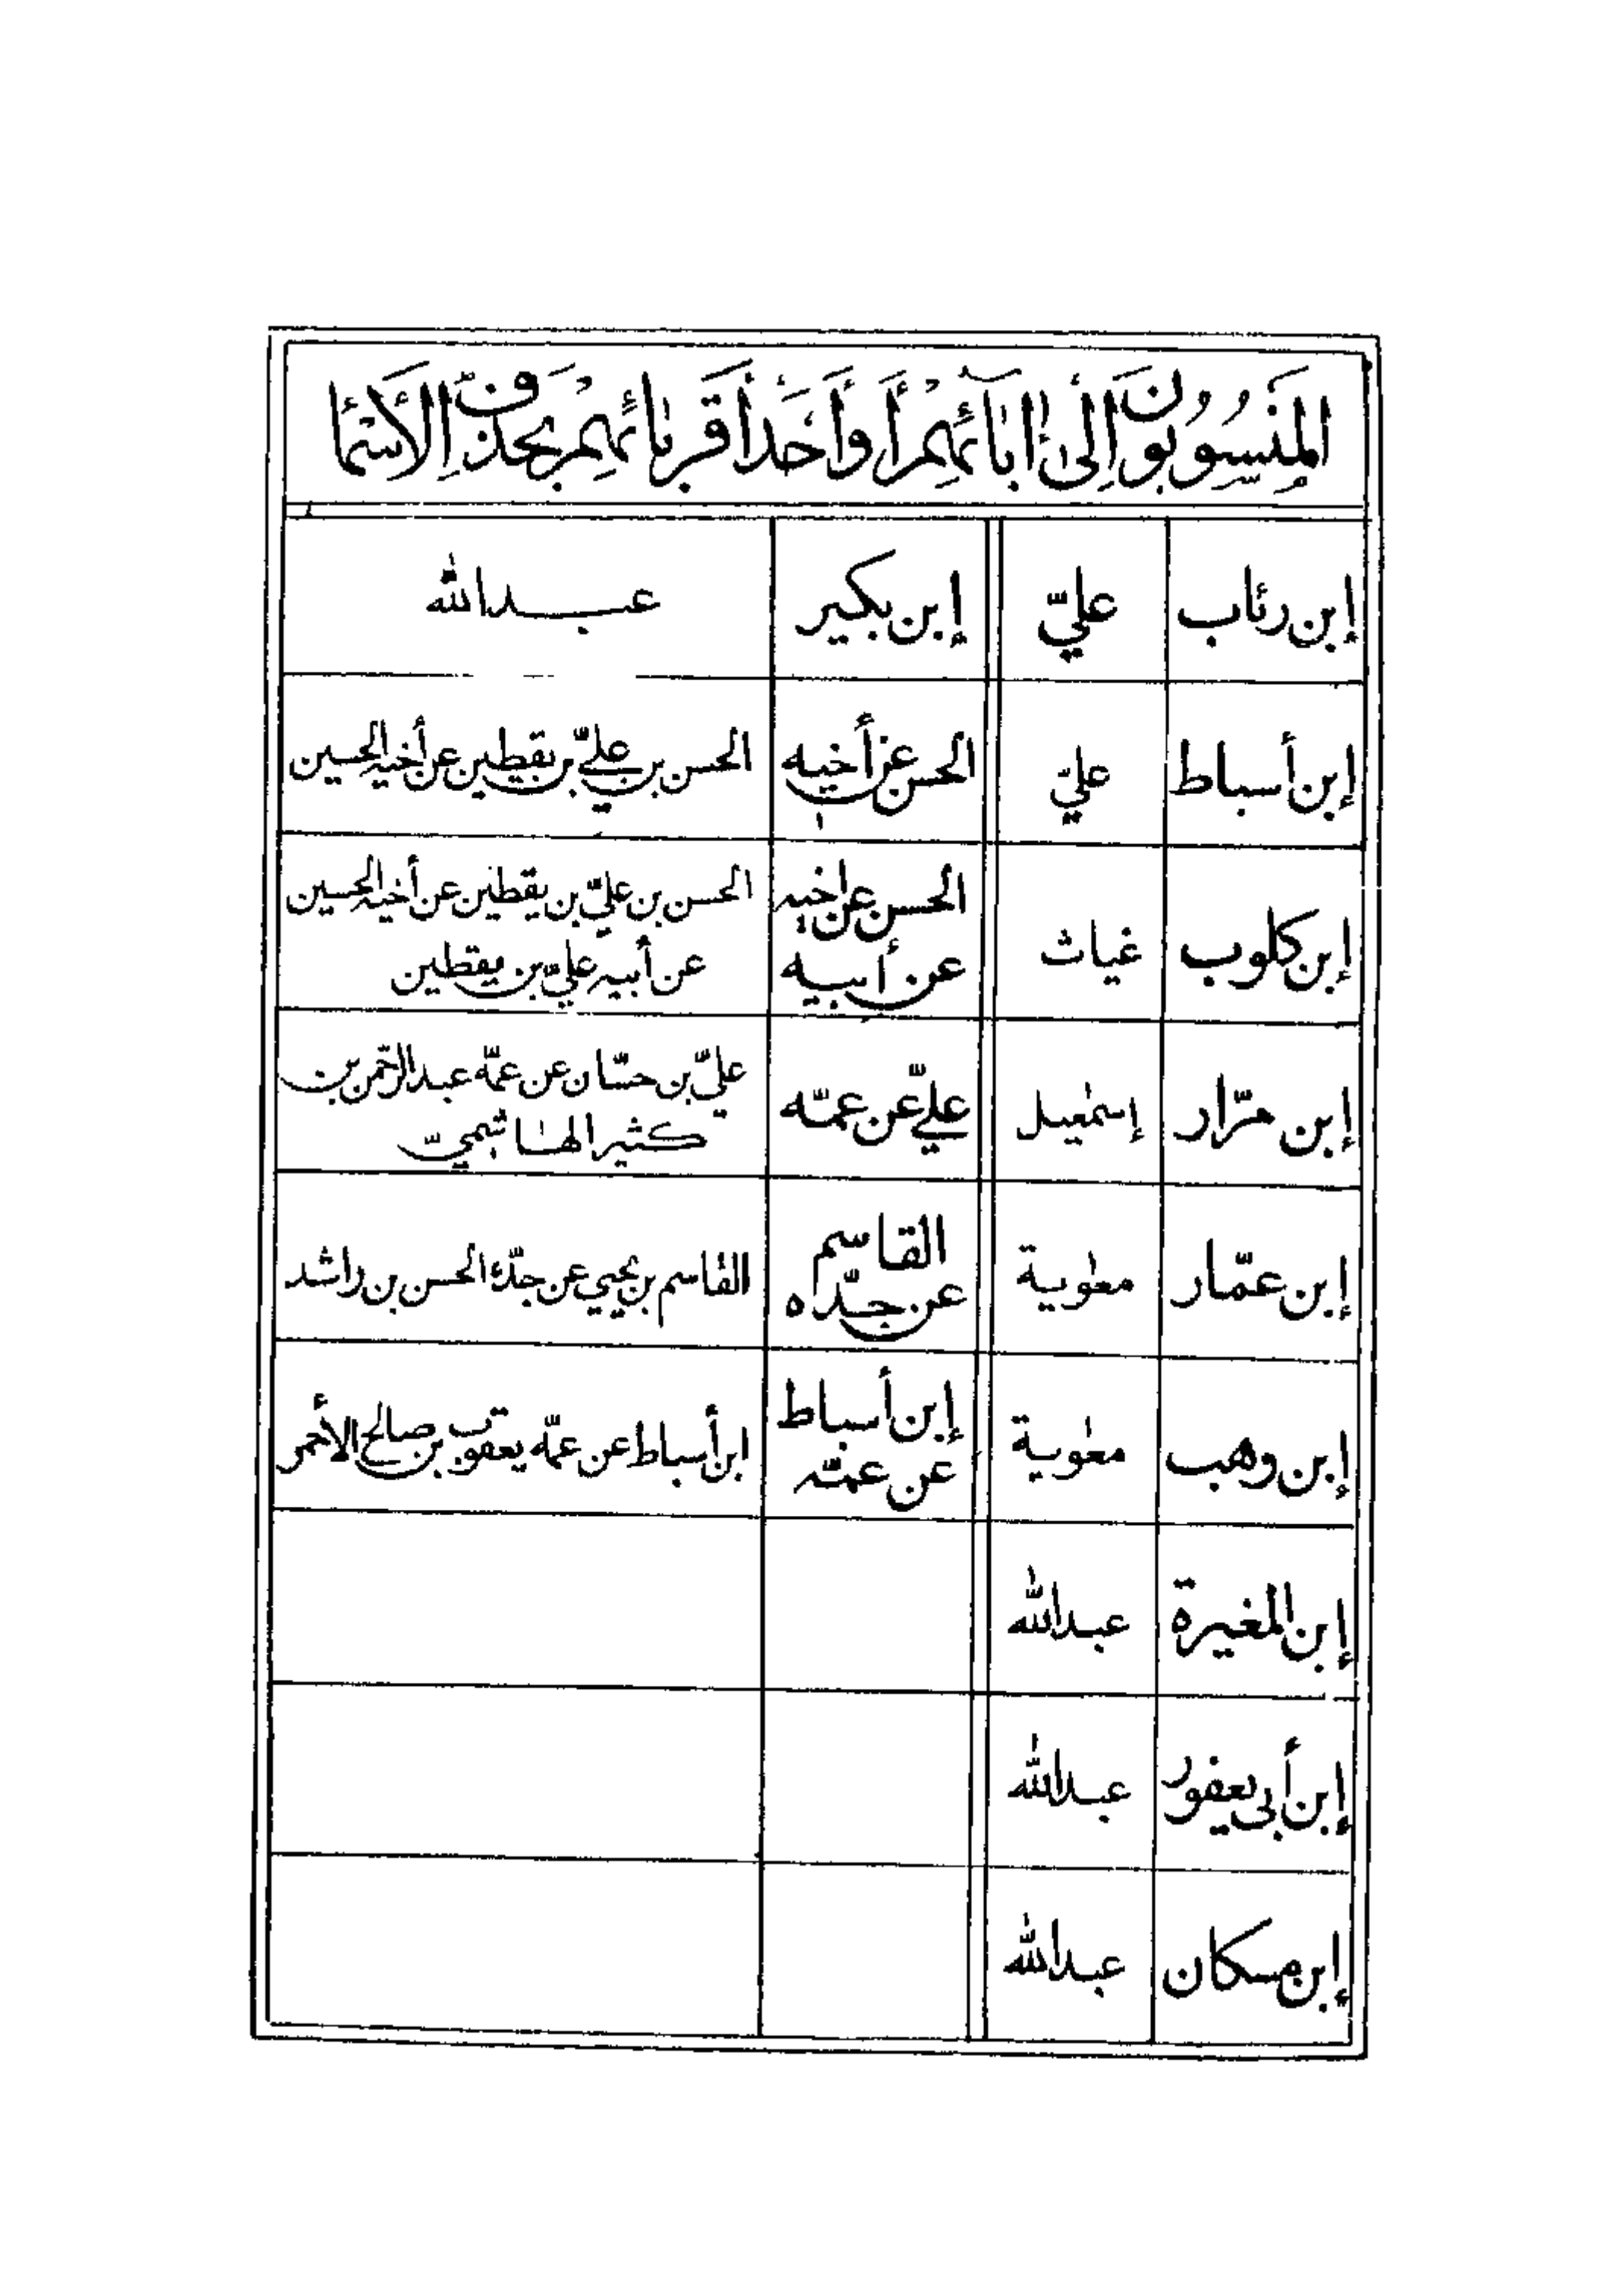 المنسوبون إلى ابائهم أو أحد أقربائهم بحذف الأسماء
إبن رئاب
عليّ
إبن بكير
عبدالله
إبن أسباط
عليّ
الحسن عن أخيه
الحسن بن عليّ بن يقطين عن أخيه الحسين
إبن كلوب
غياث
الحسن عن اخيه
عن أبيه
الحسن بن عليّ بن يقطين عن أخيه الحسين
عن أبيه عليّ بن يقطين
إبن مرّار
إسمٰعيل
عليّ عن عمّه
عليّ بن حسّان عن عمّه عبدالرّحمن بن
كثير الهاشميّ
إبن عمّار
معٰوية
القاسم
عن جدّه
القاسم بن يحيي عن جدّه الحسن بن راشد
إبن وهب
معٰوية
إبن أسباط
عن عمّه
ابن أسباط عن عمّه يعقوب بن صالح الأحمر
إبن المغيرة
عبدالله
إبن أبي يعفور
عبدالله
إبن مسكان
عبدالله